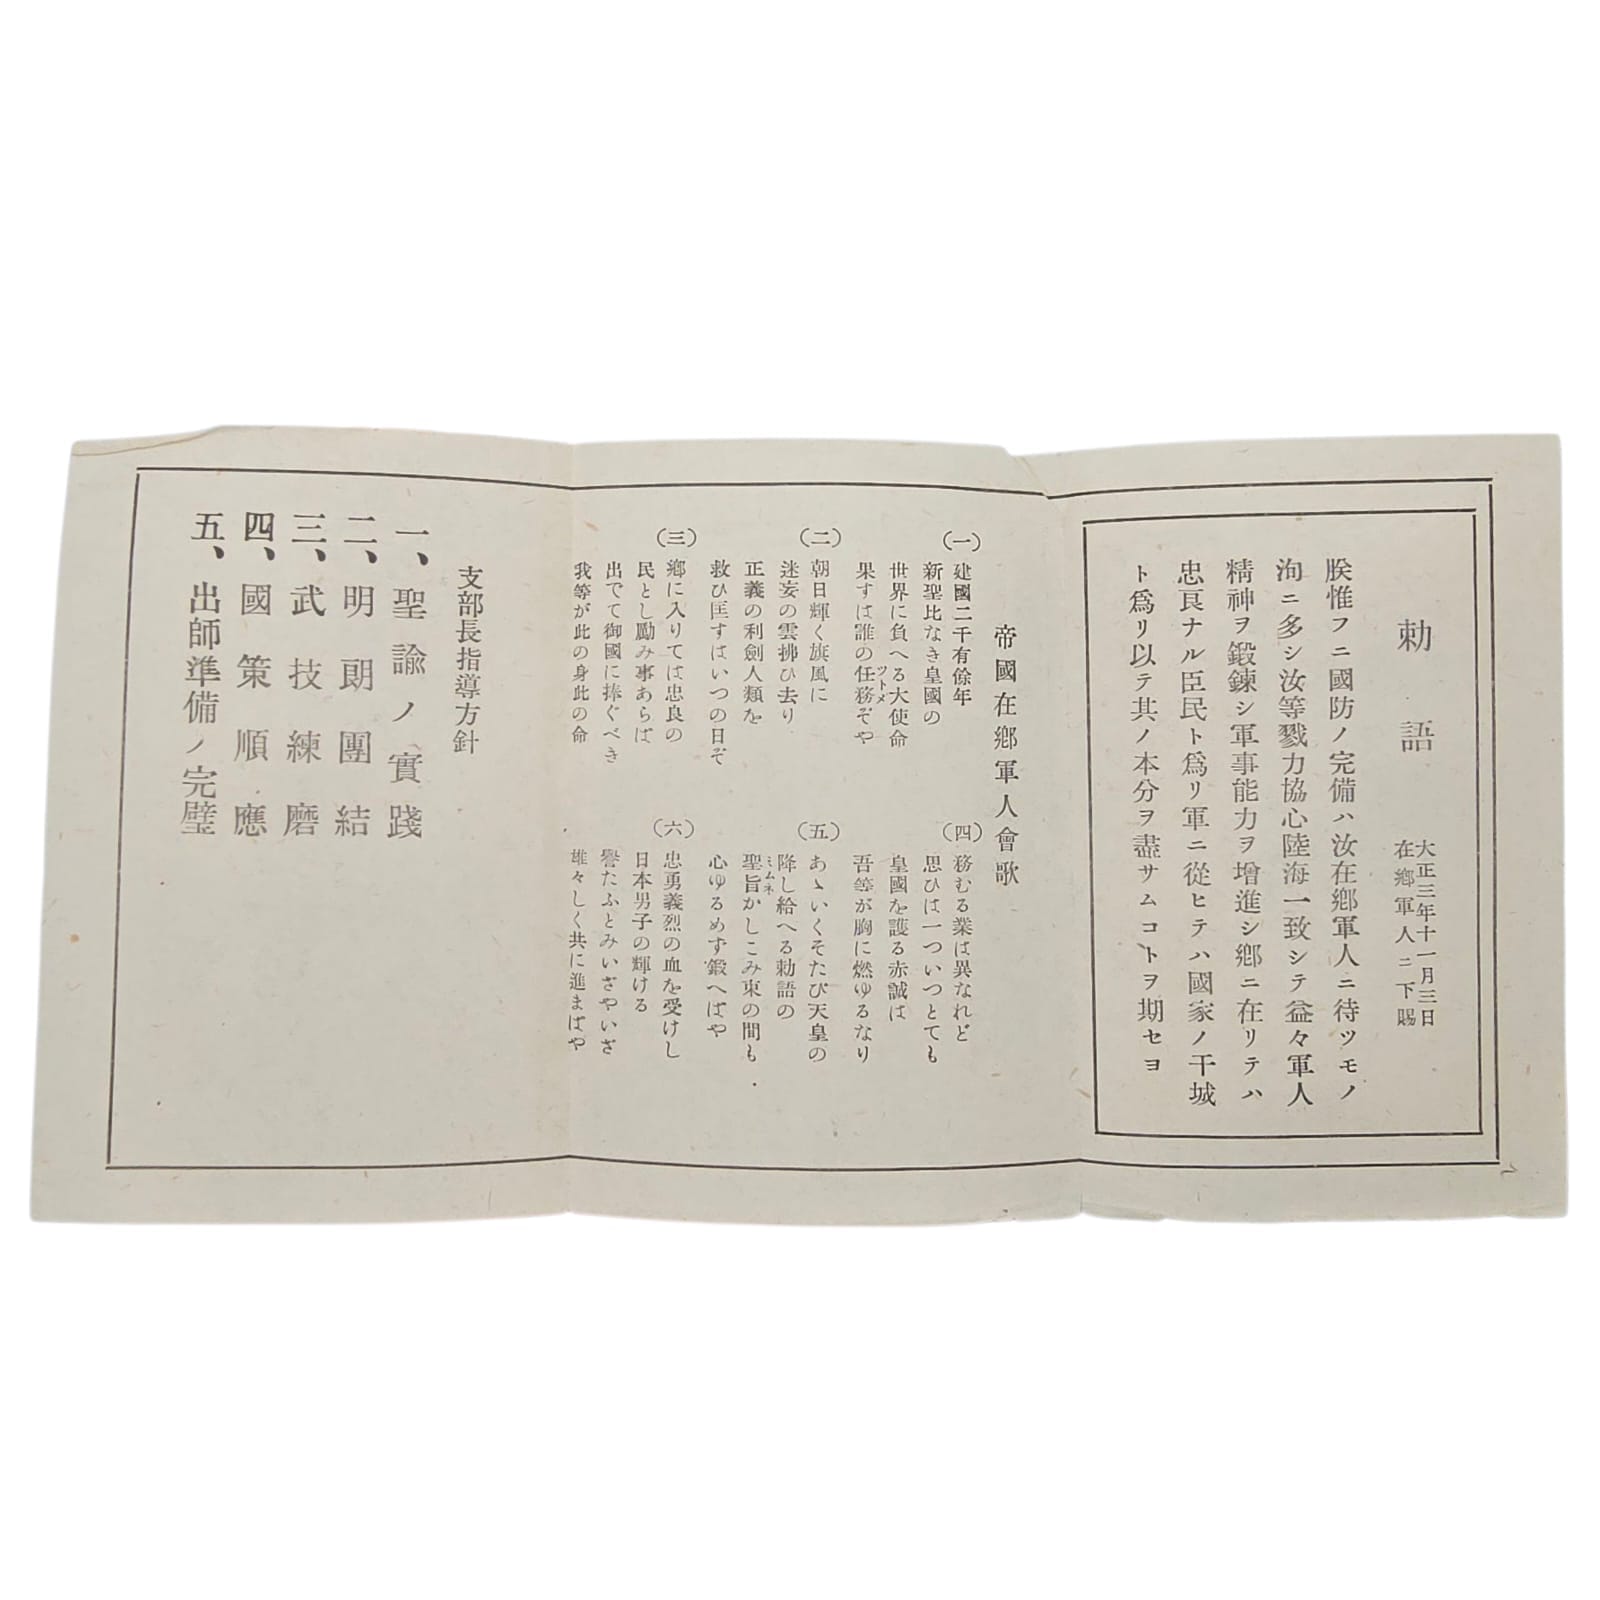 勅語
大正三年十一月三日
在鄕軍人ニ下賜
朕惟フニ國防ノ完備ハ汝在鄕軍人ニ待ツモノ
洵ニ多シ汝等戮力協心陸海一致シテ益々軍人
精神ヲ鍛鍊シ軍事能力ヲ增進シ鄕ニ在リテハ
忠良ナル臣民ト爲リ軍ニ從ヒテハ國家ノ干城
ト爲リ以テ其ノ本分ヲ盡サムコトヲ期セヨ
帝國在鄕軍人會歌
(一)
建國二千有餘年
新聖比なき皇國の
世界に負へる大使命
果すは誰の任務ぞや
ツトメ
(二)
朝日輝く旗風に
迷妄の雲拂ひ去り
正義の利劍人類を
救ひ匡すはいつの日ぞ
(三)
鄕に入りては忠良の
民とし勵み事あらば
出でて御國に捧ぐべき
我等が此の身此の命
(四)
務むる業は異なれど
思ひは一ついつとても
皇國を護る赤誠は
吾等が胸に燃ゆるなり
(五)
あゝいくそたび天皇の
降し給へる勅語の
聖旨かしこみ束の間も
ミムネ
心ゆるめず鍛へばや
(六)
忠勇義烈の血を受けし
日本男子の輝ける
譽たふとみいざやいざ
雄々しく共に進まばや
支部長指導方針
一、聖諭ノ實踐
二、明朗團結
三、武技練磨
四、國策順應
五、出師準備ノ完璧